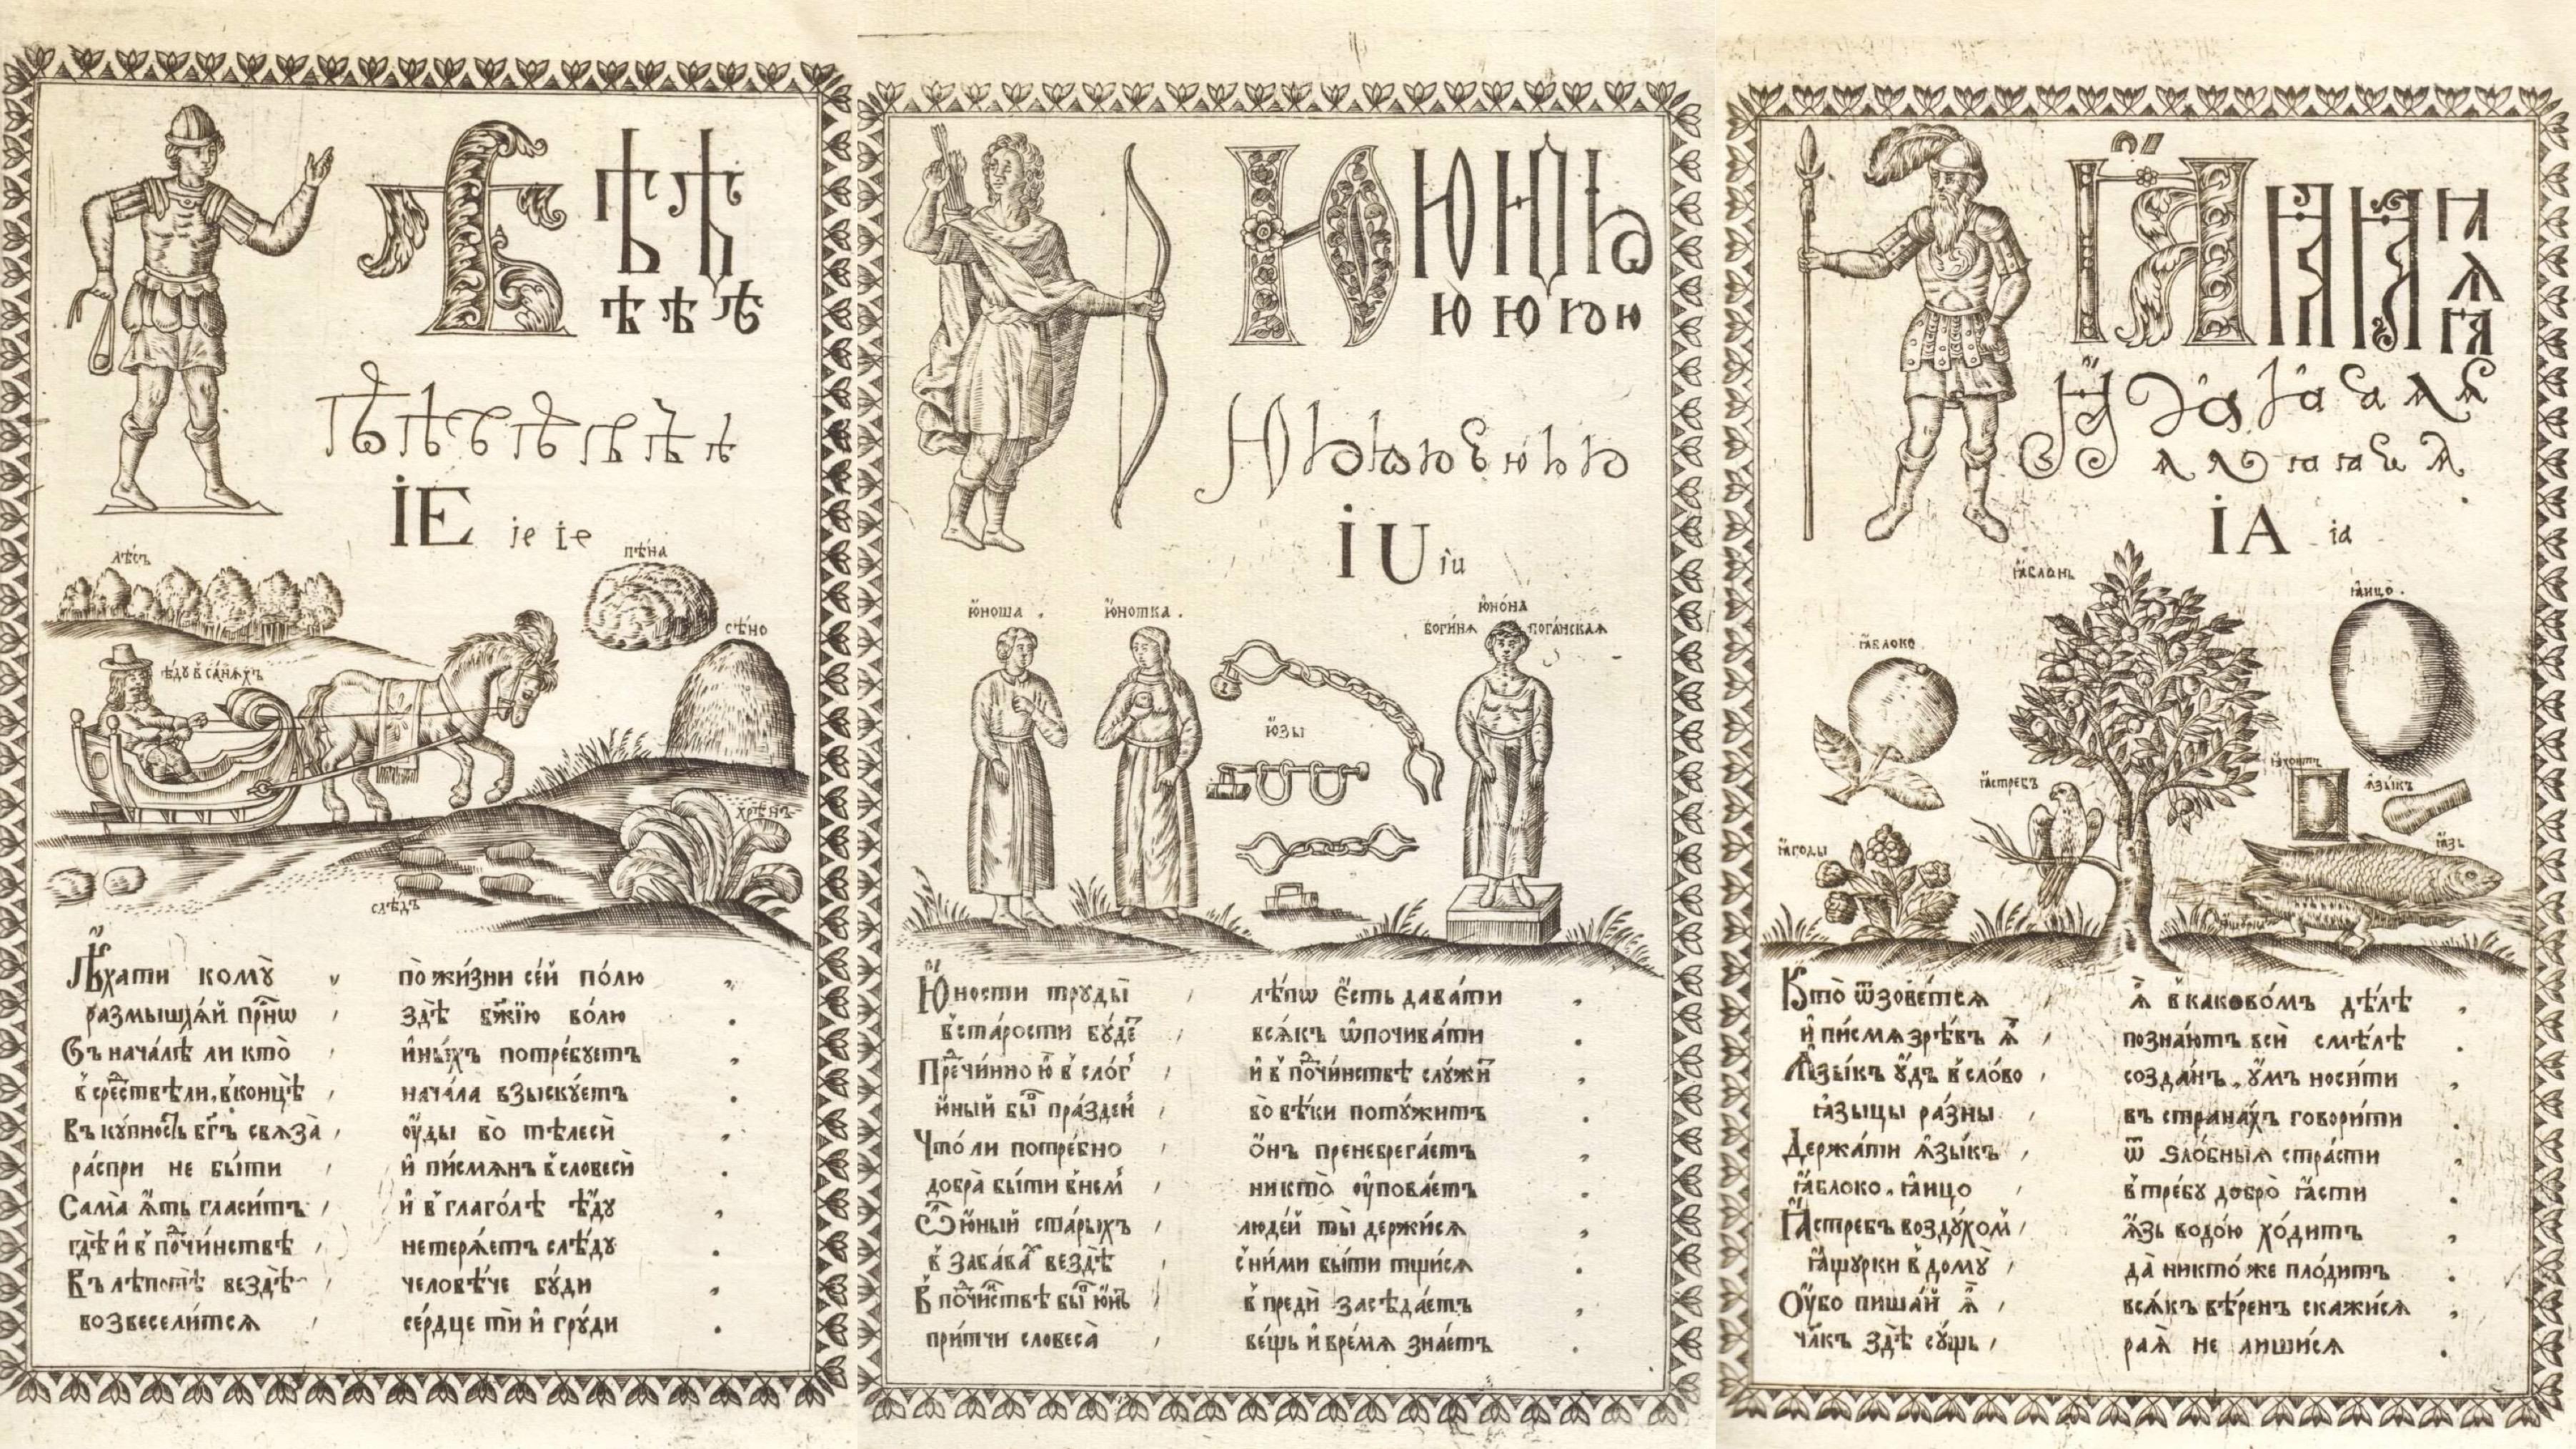 Ѣ Ѣ Ѣ
ѣ ѣ ѣ
Ѣ ѣ ѣ ѣ ѣ ѣ ѣ
İE ie ie
лѣсъ
пѣна
сѣно
ѣ҆ду в̾ са́нѧхъ
хрѣнъ
слѣдъ
Ѣ҆́хати комꙋ̀ по жи́зни се́й по́лю
размышлѧ́й пр҇нѡ здѣ̀ бж҃їю во́лю
Съ нача́лѣ ли кто̀ и҆ны́хъ потре́бꙋетъ
в̾ сре́дствѣ ли, в̾ концѣ̀ нача́ла взыскꙋ́етъ
Въ кꙋ́пность бг҃ъ свѧза̀ оу҆́ды во тѣлесѝ
ра́спри не бы́ти и҆ пи́смѧнъ в̾ словесѝ
Сама̀ ꙗ҆́ть гласи́тъ и҆ в̾ глаго́лѣ ѣ҆́дꙋ
гдѣ̀ и҆ в̾ почи́нствѣ не терѧ́етъ слѣ́дꙋ
Въ лѣ́потѣ вездѣ̀ человѣ́че бꙋ́ди
возвесели́тсѧ се́рдце тѝ и҆ грꙋ́ди
Ю Ю Ю Ю
ю ю ю ю
Ю ю ю ю ю ю ю ю
İU iu
ю҆́ноша
ю҆́нотка
ю҆но́на
боги́нѧ пога́нскаѧ
ю҆́зы
Ю҆́ности трꙋды̀ лѣ́пѡ є҆́сть дава́ти
в̾ ста́рости бꙋ́дет всѧ́къ ѡ҆почива́ти
Пречи́нно ю҆̀ в̾ сло́г и҆ в̾ почи́нствѣ слꙋ́жит
и҆́ный бы пра́зден во вѣ́ки потꙋ́житъ
Что́ ли потре́бно ѻ҆́нъ пренебрега́етъ
добра̀ бы́ти в̾ нем никто̀ оу҆пова́етъ
Ѿ ю҆́ный ста́рыхъ люде́й ты̀ держи́сѧ
в̾ заба́вах вездѣ̀ с̾ ни́ми бы́ти тщи́сѧ
В̾ почи́нствѣ бы ю҆́нъ в̾ предѝ засѣда́етъ
при́тчи словеса̀ ве́щь и҆ вре́мѧ зна́етъ
Ꙗ Ꙗ Ꙗ ꙗ
ѧ
ꙗ
İA ia
ꙗ҆́блонь
ꙗ҆ицо̀
ꙗ҆́блоко
ꙗ҆́стребъ
ꙗ҆́хонтъ
ѧ҆зы́къ
ꙗ҆́годы
ꙗ҆́зь
Кто̀ ѿзове́тсѧ ѧ҆̀ в̾ каково́мъ дѣ́лѣ
и҆ пи́смѧ зрѣ́въ ѧ҆̀ позна́ютъ всѝ смѣ́лѣ
Ѧ҆зы́къ оу҆́дъ в̾ сло́во созда́нъ, оу҆́мъ носи́ти
ꙗ҆зы́цы ра́зны въ страна́хъ говори́ти
Держа́ти ѧ҆зы́къ ѿ ѕло́бныѧ стра́сти
ꙗ҆́блоко, ꙗ҆ицо̀ в̾ тре́бꙋ добро̀ ꙗ҆́сти
Ꙗ҆́стребъ воздꙋ́хом ꙗ҆́зь водо́ю хо́дитъ
ꙗ҆́щꙋрки в̾ домꙋ̀ да̀ никто́ же пло́дитъ
Оу҆́бо пиша́й ѧ҆̀ всѧ́къ вѣ́ренъ скажи́сѧ
чл҃къ здѣ̀ сꙋ́щь раѧ̀ не лиши́сѧ